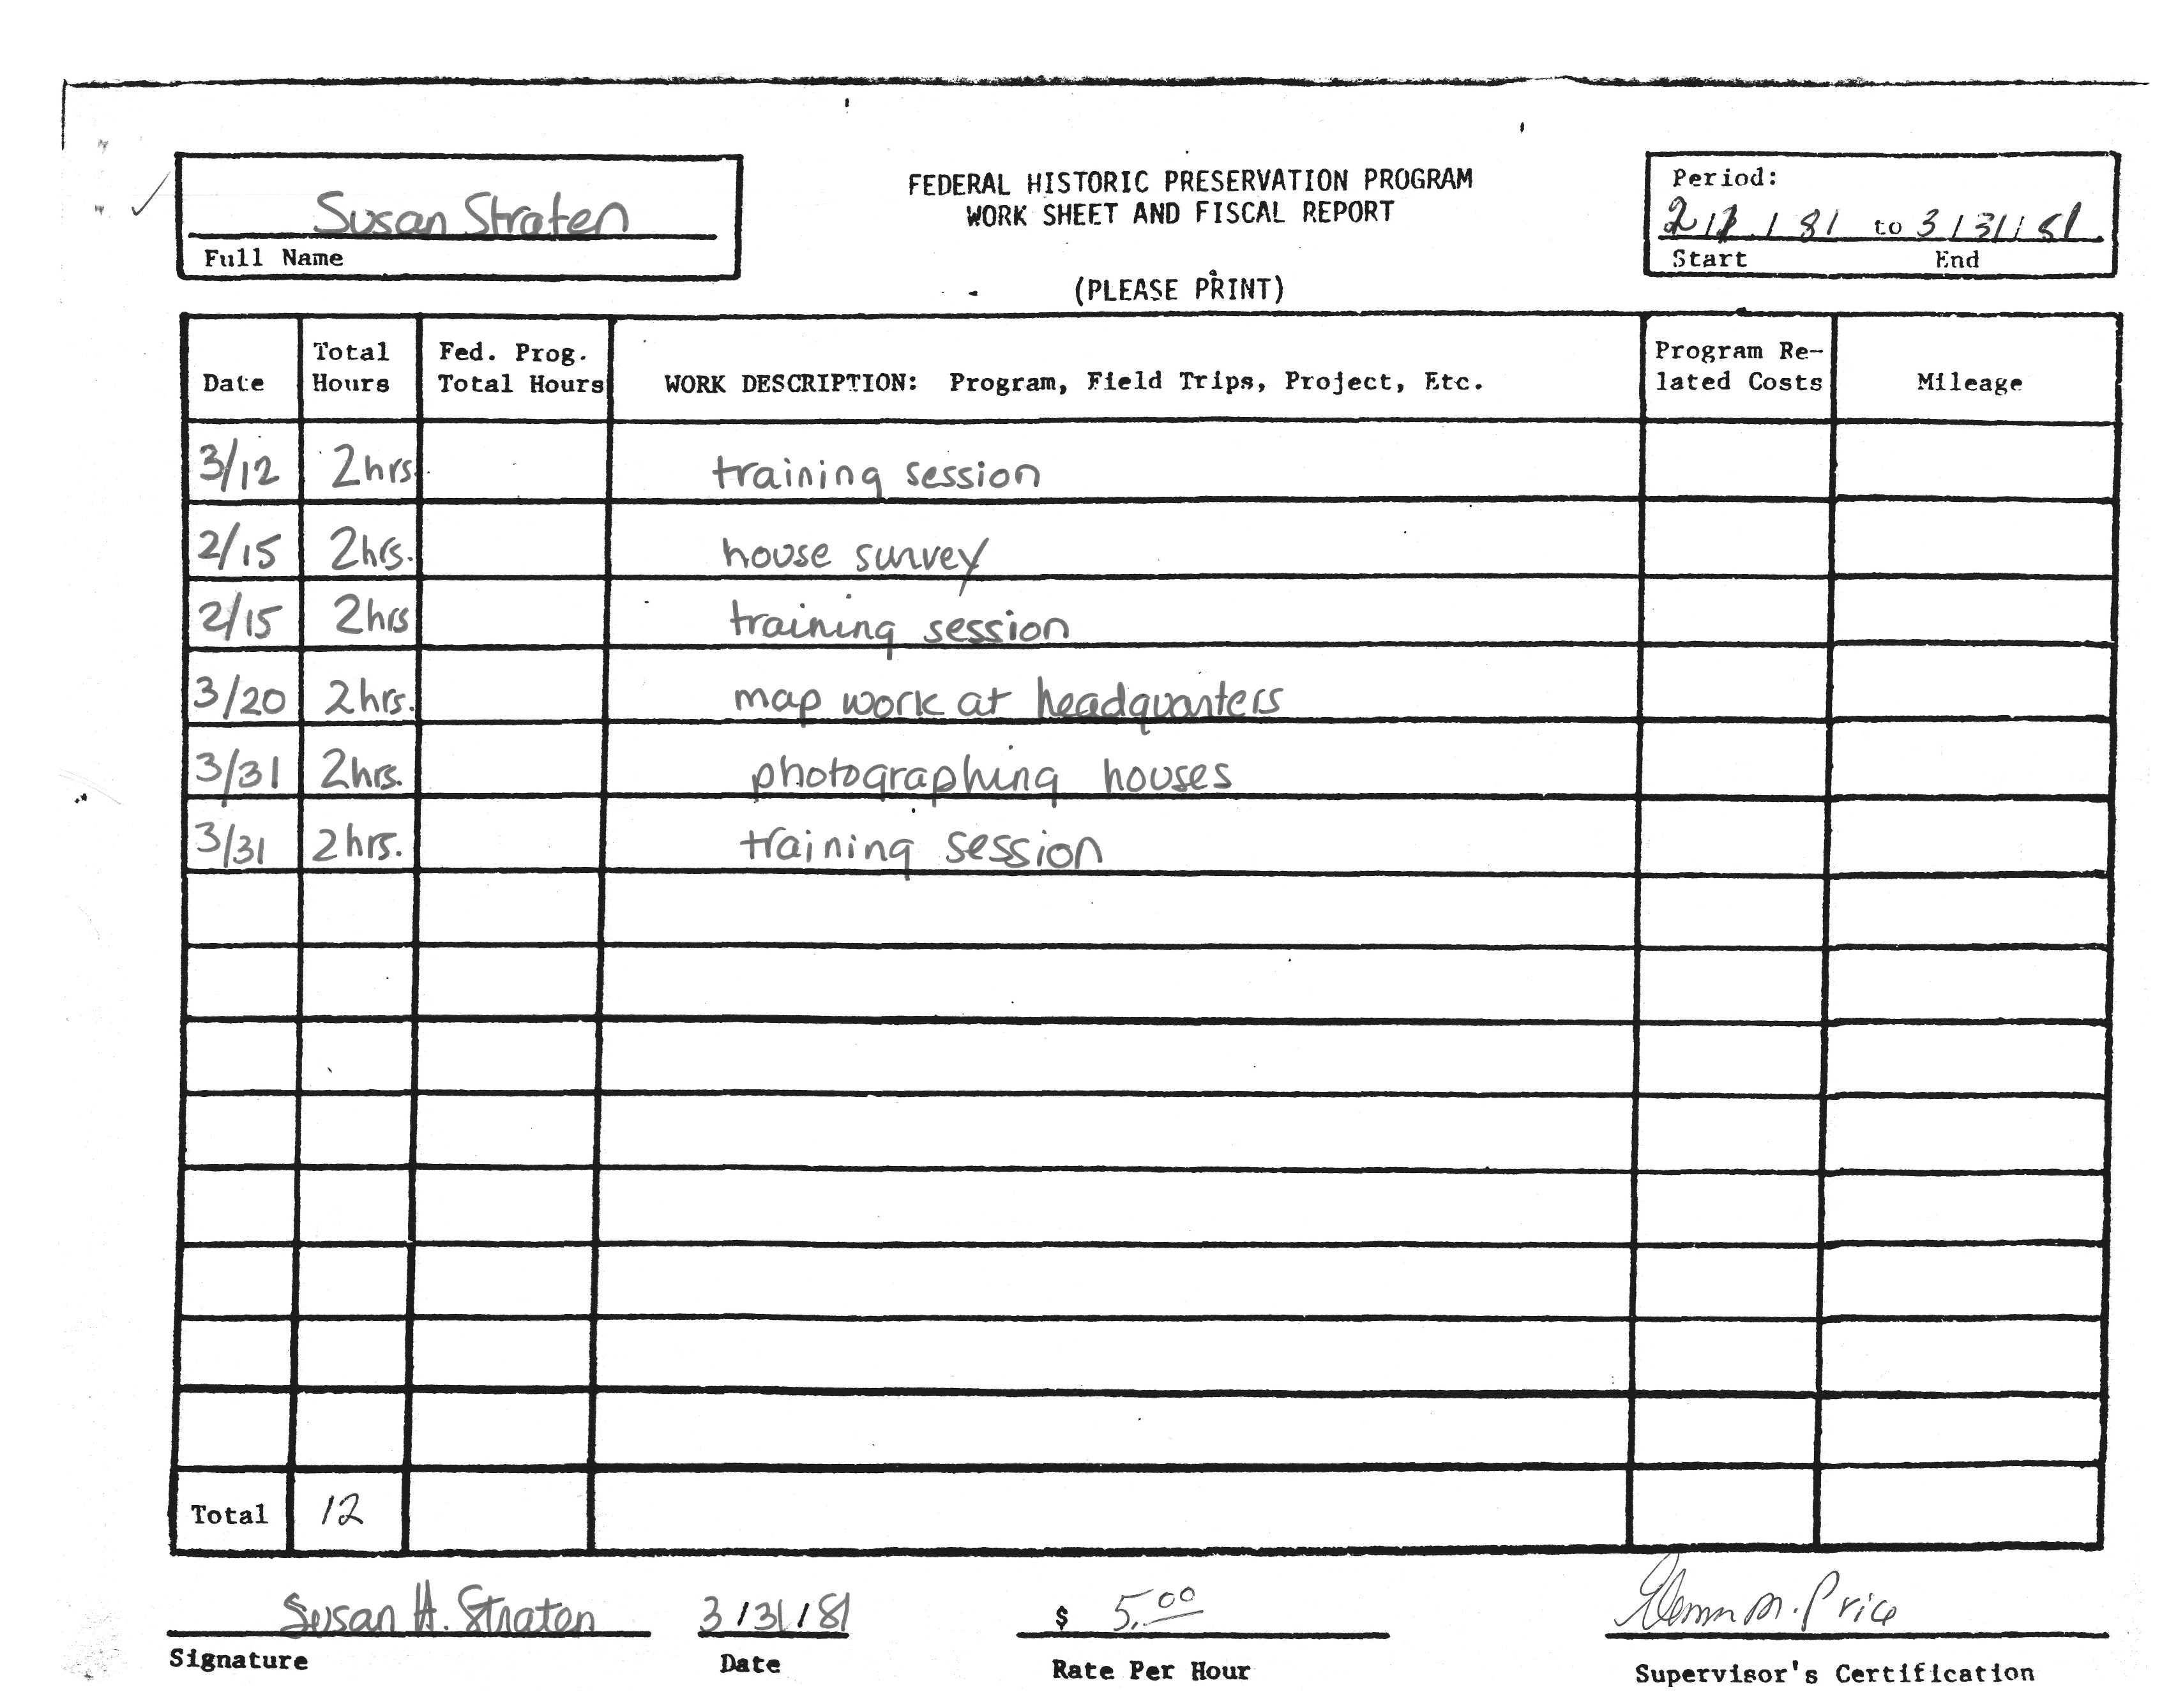 Susan Straten
Full Name
FEDERAL HISTORIC PRESERVATION PROGRAM
WORK SHEET AND FISCAL REPORT
(PLEASE PRINT)
Period:
2/1/81 to 3/31/81
Start End
Date Total Hours Fed. Prog. Total Hours WORK DESCRIPTION: Program, Field Trips, Project, Etc. Program Re-lated Costs Mileage
3/12 2hrs training session
2/15 2hrs. house survey
2/15 2hrs training session
3/20 2hrs. map work at headquarters
3/31 2hrs. photographing houses
3/31 2hrs. training session
Total 12
Susan H. Straten 3/31/81 $ 5.00 M. Price
Signature Date Rate Per Hour Supervisor's Certification